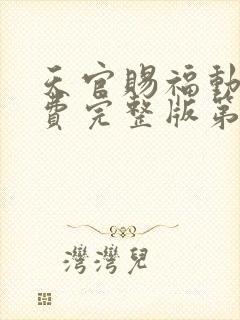 天官賜福動
費完整版第
灣灣兒